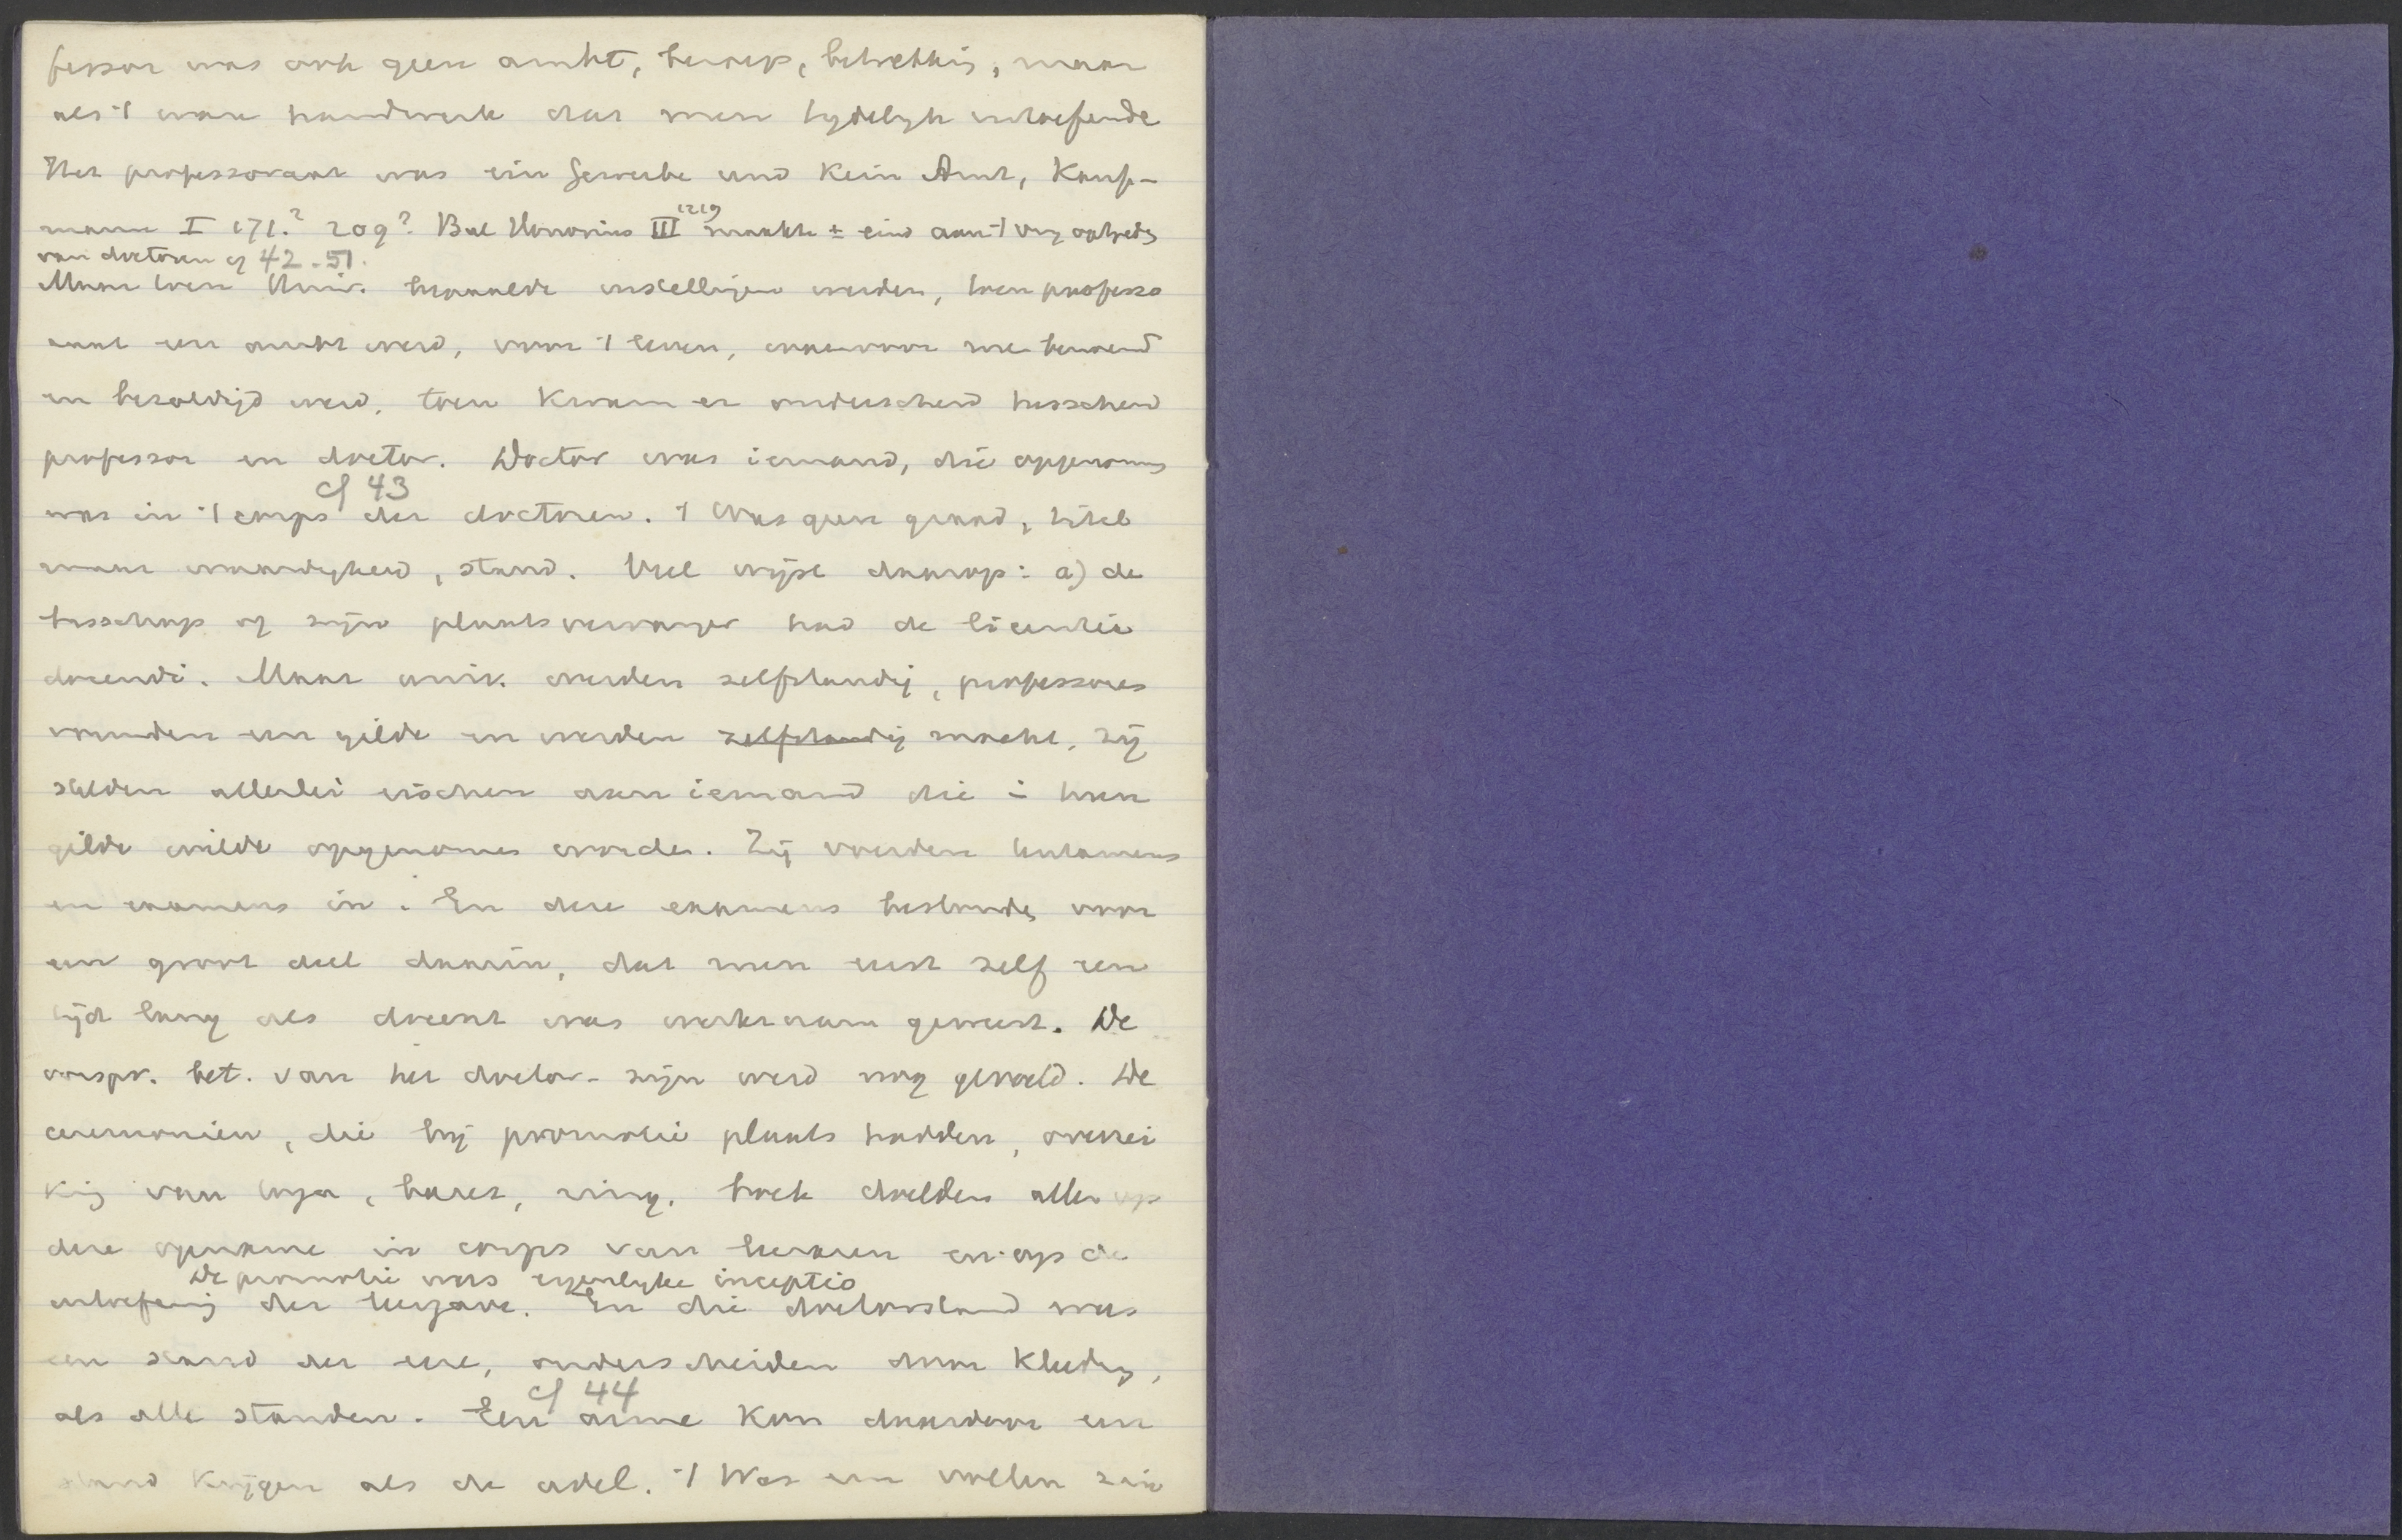 fessor was ook geen ambt, beroep, betrekking, maar
als 't ware handwerk dat men tydelyk uitoefende
Het professoraat was ein Gewerbe und kein Amt, Kauf-
mann I 171.? 209? Bul Honorius III 1219 maakte ± eind aan 't vrij optreden
van doctoren cf 42-51.
Maar toen Univ. bepaalde instellingen werden, toen professo
raat een ambt werd, voor 't leven, waarvoor men benoemd
en bezoldigd werd, toen kwam er onderscheid tusschen
professor en doctor. Doctor was iemand, die opgenomen
cf 43
was in 't corps der doctoren. 't Was geen graad, titel
maar waardigheid, stand. Veel wijst daarop: a) de
bisschop of zijn plaatsvervanger had de licentia
docendi. Maar univ. werden zelfstandig, professores
vormden een gilde en werden zelfstandig macht, zij
stelden allerlei eischen aan iemand die in hun
gilde wilde opgenomen worden. Zij voerden tentamens
en examens in. En deze examens bestonden voor
een groot deel daarin, dat men eerst zelf een
tijd lang als docent was werkzaam geweest. De
oorspr. bet. van het doctor-zijn werd nog gevoeld. De
ceremoniën, die bij promotie plaats hadden, overrei
king van toga, baret, ring, boek doelden allen op
deze opname in corps van leeraren en op de
De promotie was eigenlyke inceptio
uitoefening der leergave. En die doctorstand was
een stand der eere, onderscheiden door kleeding,
cf 44
als alle standen. Een arme kon daardoor een
stand krijgen als de adel. 't Was een